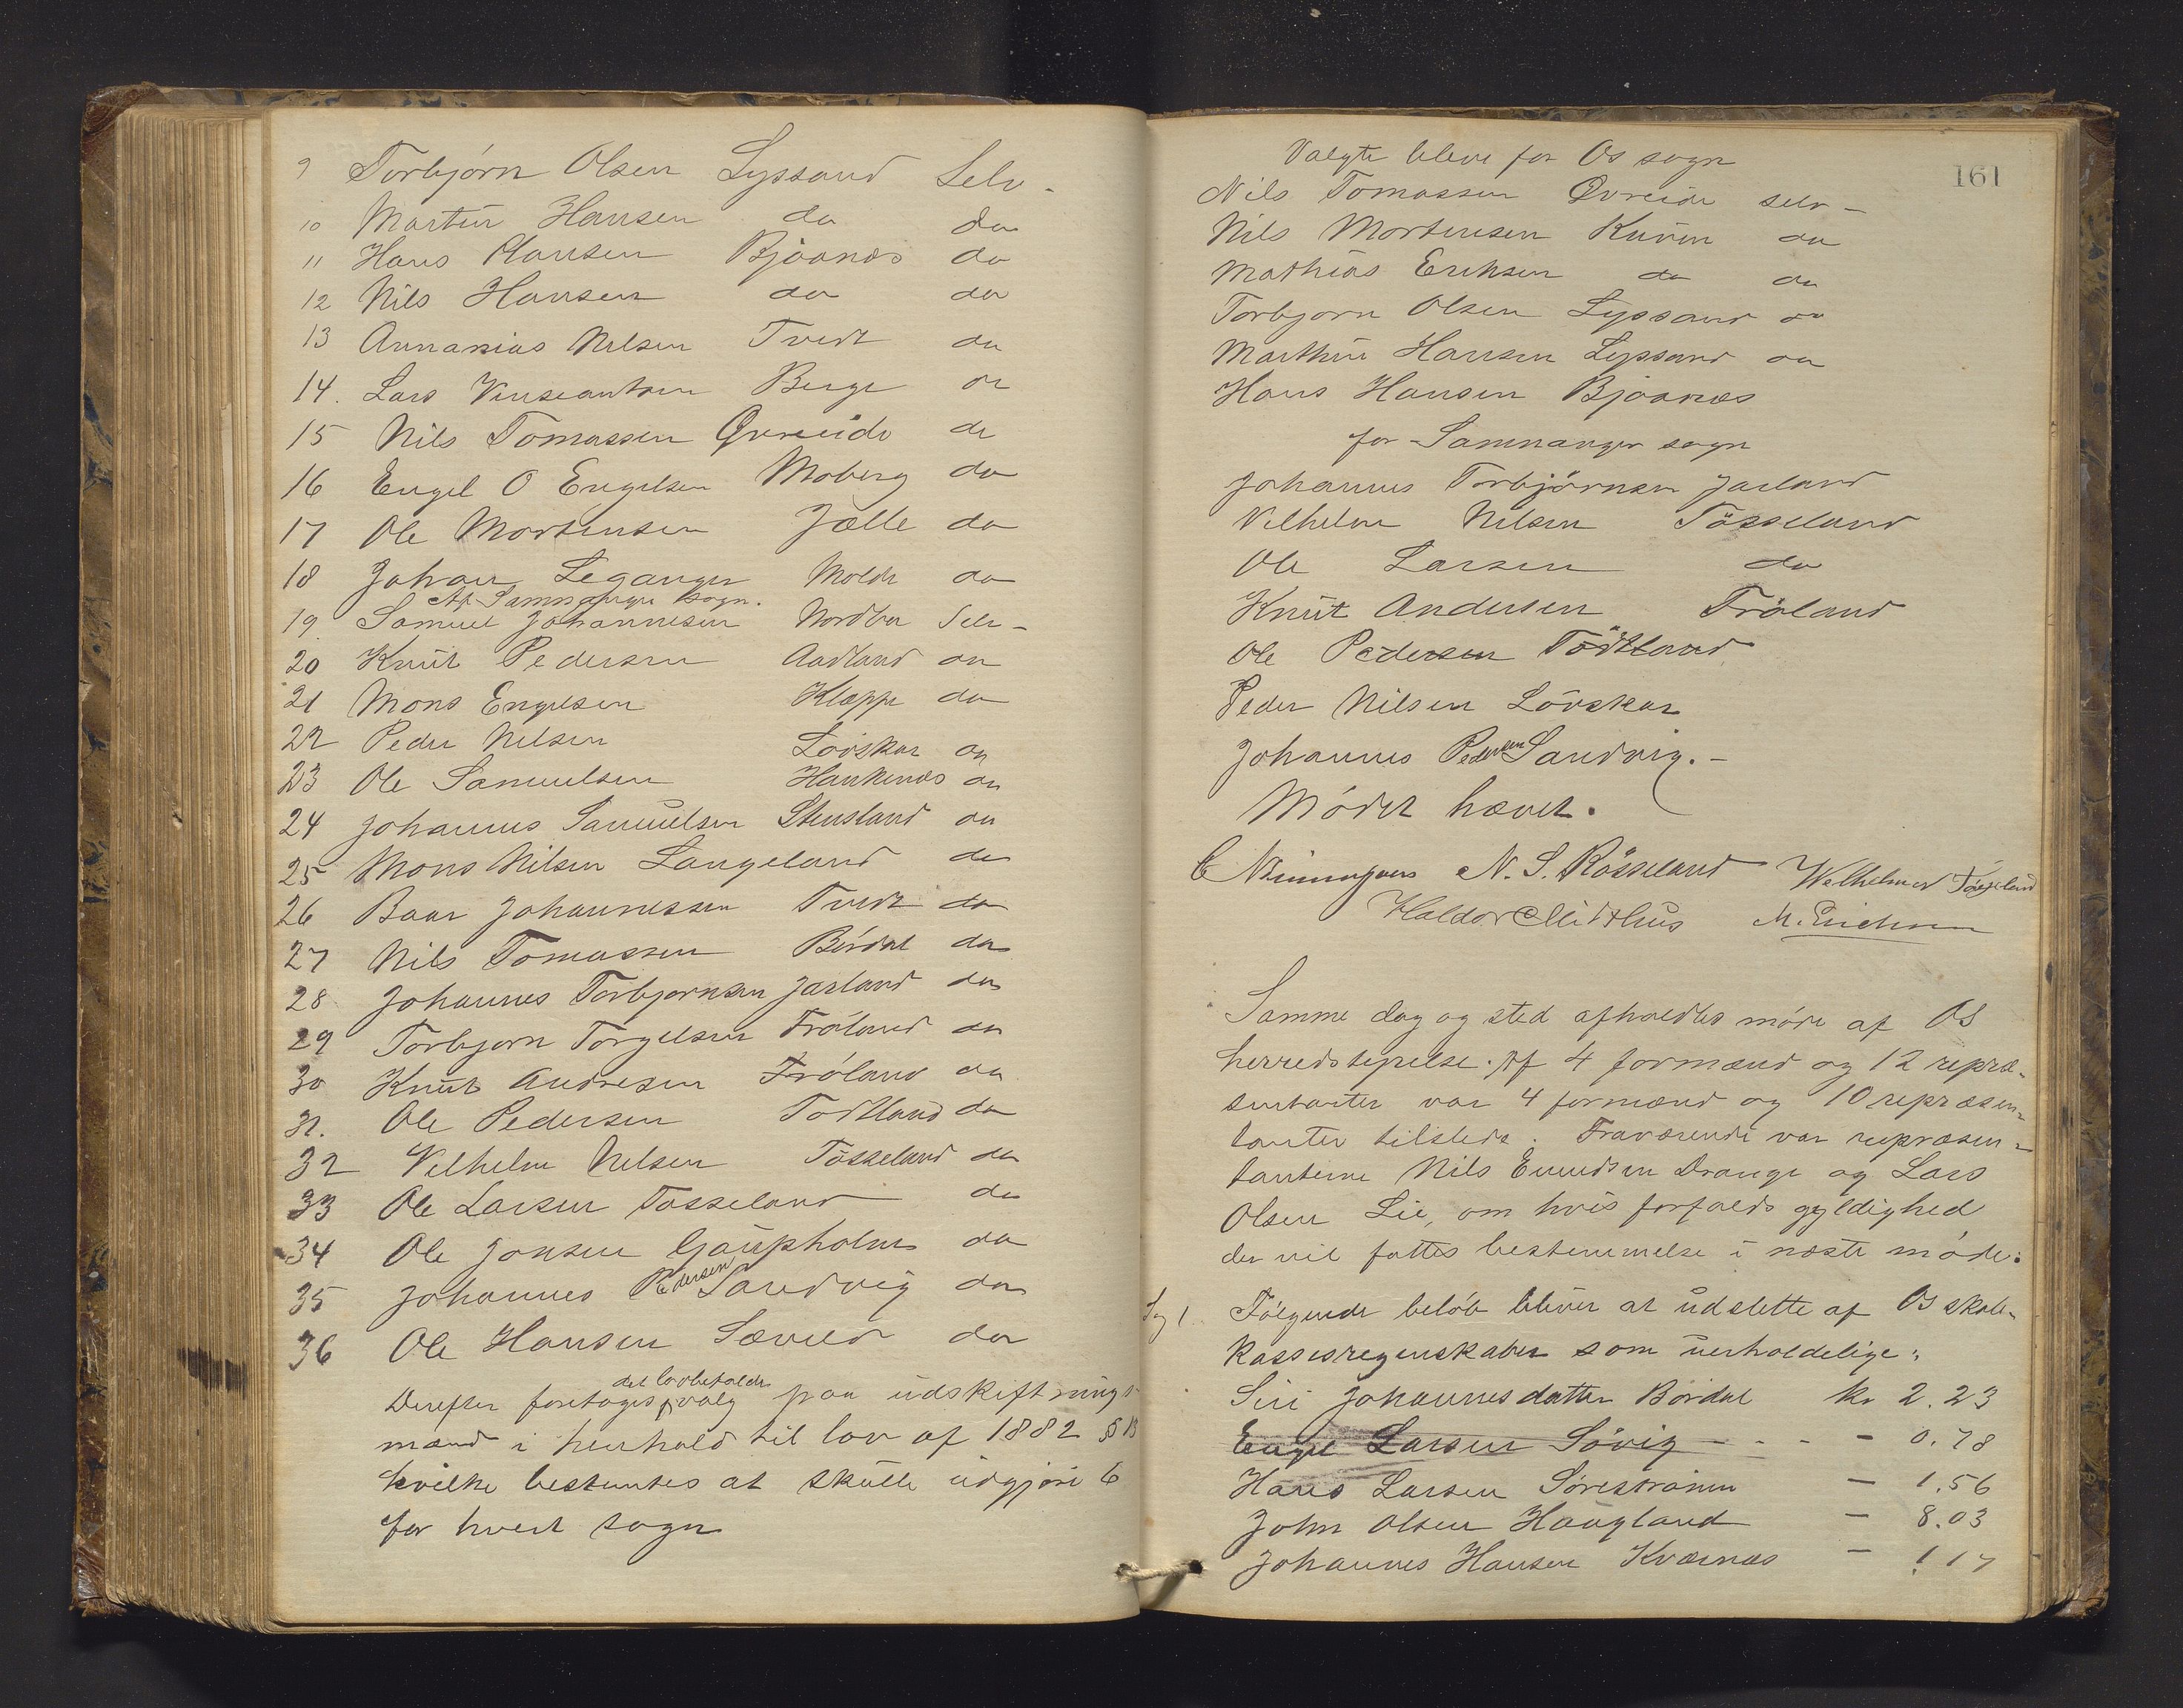 9 Torbjörn Olsen Lyssand Selv.
10 Martin Hansen do do
11 Hans Hansen Bjøanæs do
12 Nils Hansen do do
13 Annanias Nilsen Tvedt do
14. Lars Vinseantsen Berge do
15 Nils Tomassen Øvreeide do
16 Engel O Engelsen Moberg do
17 Ole Mortensen Jælle do
18 Johan Leganger Molde do
Af Samnanger sogn.
19. Samuel Johannesen Nordbø Selv -
20 Knut Pedersen Aadland do
21 Mons Engelsen Kleppe do
22 Peder Nilsen Lövskar do
23 Ole Samuelsen Haukenæs do
24 Johannes Samuelsen Stensland do
25 Mons Nilsen Langeland do
26 Baar Johannessen Tvedt do
27 Nils Tomassen Bördal do
28 Johannes Torbjornsen Jarland do
29 Torbjorn Torgelsen Fröland do
30 Knut Andresen Fröland do
31. Ole Pedersen Todtland do
32 Vilhelm Nilsen Tösseland do
33 Ole Larsen Tösseland do
34 Ole Jonsen Gaupholm do
35 Johannes Pedersen Sandvig do
36 Ole Hansen Sævild do
Derefter foretoges det lovbefalede valg paa udskiftnings
mænd i henhold til lov af 1882 § 13
hvilke bestemtes at skulle udgjöre 6
for hvert sogn
161
Valgte bleve for Os sogn
Nils Tomassen Øvreide selv -
Nils Mortensen Kuven do
Mathias Eriksen do do
Torbjorn Olsen Lyssand do
Marthin Hansen Lyssand do
Hans Hansen Bjøanæs
for Samnanger sogn
Johannes Torbjörnsen Jarland
Vilhelm Nilsen Tösseland
Ole Larsen do
Knut Andersen Fröland
Ole Pedersen Tödtland
Peder Nilsen Lövskar
Johannes Pedersen Sandvig. -
Mödet hævet.
N. S. Rösseland Wilhelm N Tösseland
Haldor Midthus M. Erichsen
Samme dag og sted afholdtes möde af Os
herredstyrelse. Af 4 formænd og 12 repræ-
sentanter var 4 formænd og 10 repræsen-
tanter tilstede. Fraværende var repræsen-
tanterne Nils Enundsen Drange og Lars
Olsen Lie, om hvis forfalds gyldighed
der vil fattes bestemmelse i næste möde:
Sag 1. Fölgende belöb bliver at udslette af Os skole-
kassesregnskaber som uerholdelige:
Siri Johannesdatter Bördal kr 2.23
Engel Larsen Sövig - - - - 0.78
Hans Larsen Söreströnen - 1.56
John Olsen Haugland - 8.03
Johannes Hansen Kværnæs - 1.17